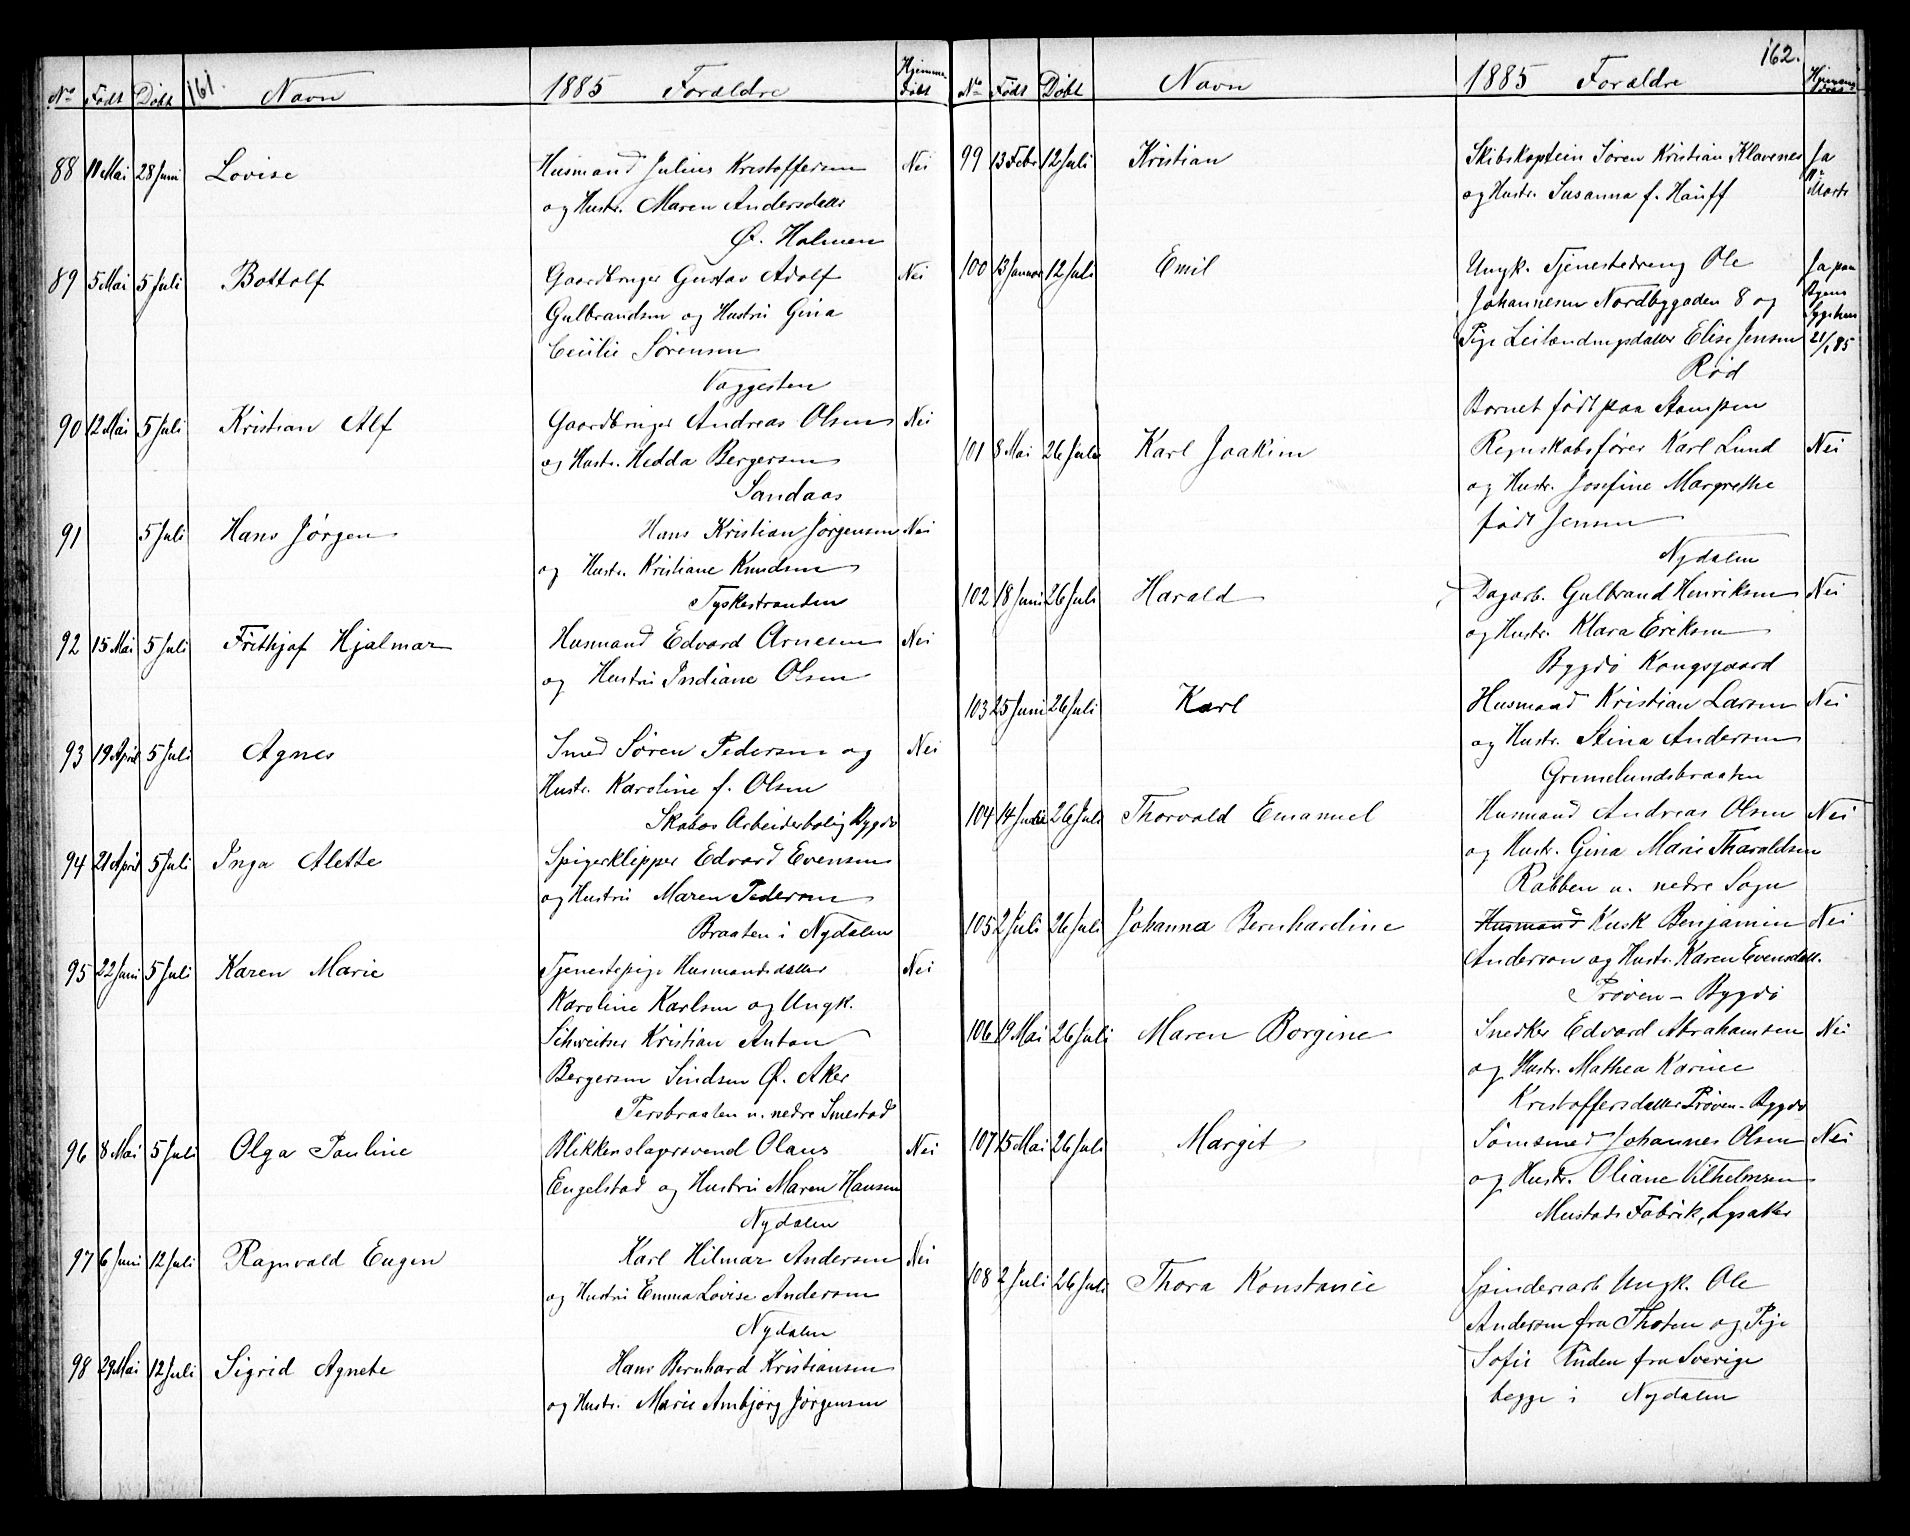 161.
No Født Døbt Navn 1885 Forældre Hjemme døbt
88 11 Mai 28 Juni Lovise Husmand Julius Kristoffersen Nei
og Hustr. Maren Andersdatter
Ø. Holmen
89 5 Mai 5 Juli Bottolf Gaardbruger Gustav Adolf Nei
Gulbrandsen og Hustru Gina
Cecilie Sørensen
Vaggesten
90 12 Mai 5 Juli Kristian Alf Gaardbruger Andreas Olsen Nei
og Hustr. Hedda Bergersen
Sandaas
91 5 Juli Hans Jørgen Hans Kristian Jørgensen Nei
og Hustr. Kristiane Knudsen
Tyskestranden
92 15 Mai 5 Juli Frithjof Hjalmar Husmand Edvard Arnesen Nei
og Hustru Indiane Olsen
93 19 April 5 Juli Agnes Smed Søren Pedersen og Nei
Hustr. Karoline f. Olsen
Skabos Arbeiderbolig Bygdø
94 21 April 5 Juli Inga Alette Spigerklipper Edvard Evensen
og Hustru Maren Pedersen
Braaten i Nydalen
95 22 Juni 5 Juli Karen Marie Tjenestepige Husmandsdatter Nei
Karoline Karlsen og Ungk.
Schweitser Kristian Anton
Bergersen Sindsen Ø. Aker
Persbraaten u. nedre Smestad
96 8 Mai 5 Juli Olga Pauline Blikkenslagersvend Olaus Nei
Engelstad og Hustru Maren Hansen
Nydalen
97 6 Juni 12 Juli Ragnvald Eugen Karl Hilmar Andersen Nei
og Hustru Emma Lovise Andersen
Nydalen
98 29 Mai 12 Juli Sigrid Agnete Hans Bernhard Kristiansen
og Hustr. Marie Ambjørg Jørgensen
162.
No Født Døbt Navn 1885 Forældre Hjemme døbt
99 13 Febr 12 Juli Kristian Skibskaptein Søren Kristian Klavenes Ja
og Hustr. Susanna f. Hauff Marts
100 13 Januar 12 Juli Emil Ungk. Tjenestedreng Ole Ja paa
Johannesen Nordbygaden 8 og Byens
Pige Leilændingsdatter Elise Jensen Sygehus 21/1 85
Rød
Barnet født paa Stampen
101 8 Mai 26 Juli Karl Joakim Regnskabsfører Karl Lund Nei
og Hustr. Josefine Margrethe
født Jensen
Nydalen
102 18 Juni 26 Juli Harald Dagarb. Gulbrand Henriksen Nei
og Hustr. Klara Eriksen
Bygdø Kongsgaard
103 25 Juni 26 Juli Karl Husmand Kristian Larsen Nei
og Hustr. Stina Andersen
Grimelundsbraaten
104 14 26 Juli Thorvald Emanuel Husmand Andreas Olsen Nei
og Hustr. Gina Marie Tharaldsen
Rabben u. nedre Sogn
105 2 Juli 26 Juli Johanna Bernhardine Husmand Kusk Benjamin Nei
Anderson og Hustr. Karen Evensdatt.
Prøven - Bygdø
106 19 Mai 26 Juli Maren Borgine Snedker Edvard Abrahamsen Nei
og Hustr. Mathea Karine
Kristoffersdatter Prøven - Bygdø
107 15 Mai 26 Juli Margit Sømsmed Johannes Olsen Nei
og Hustr. Oliane Vilhelmsen
Mustads Fabrik, Lysaker
108 2 Juli 26 Juli Thora Konstance Spinderiarb Ungk. Ole
Andersen fra Thoten og Pige
Sofie Linden fra Sverige
begge i Nydalen